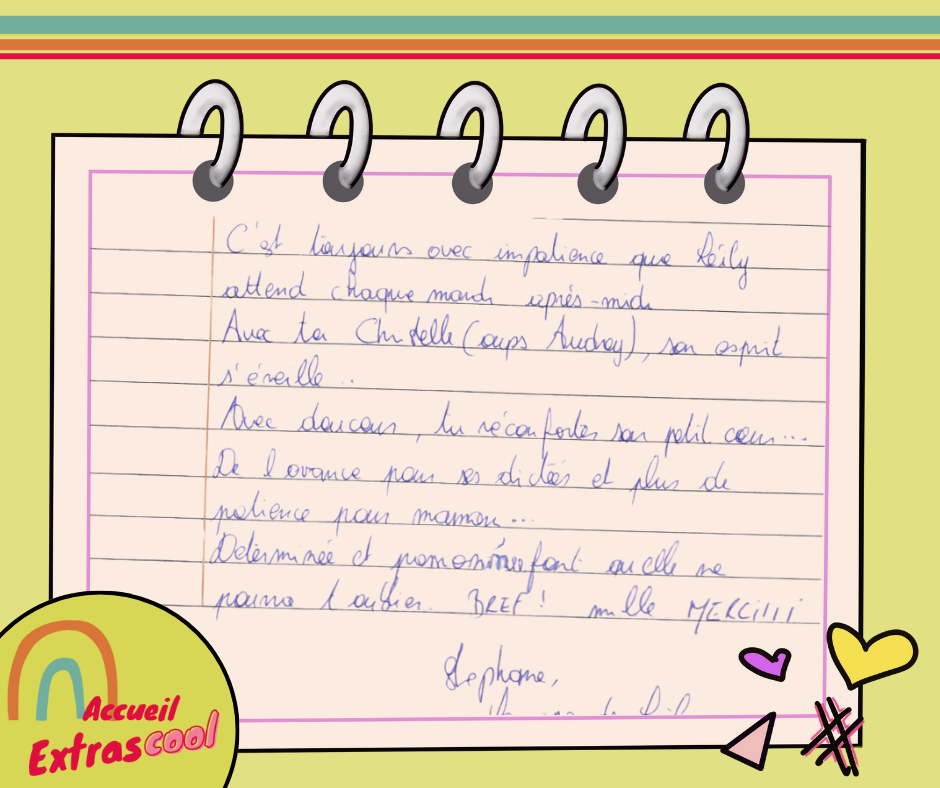 C'est toujours avec impatience que Keily
attend chaque mardi après-midi
Avec toi Christelle (oups Audrey), son esprit
s'éveille...
Avec douceur, tu réconfortes son petit cœur...
De l'avance pour ses dictées et plus de
patience pour maman...
Déterminée et
elle ne
pourra t'oublier. BREF! mille MERCIiii
Stephanie,
Accueil
Extrascool